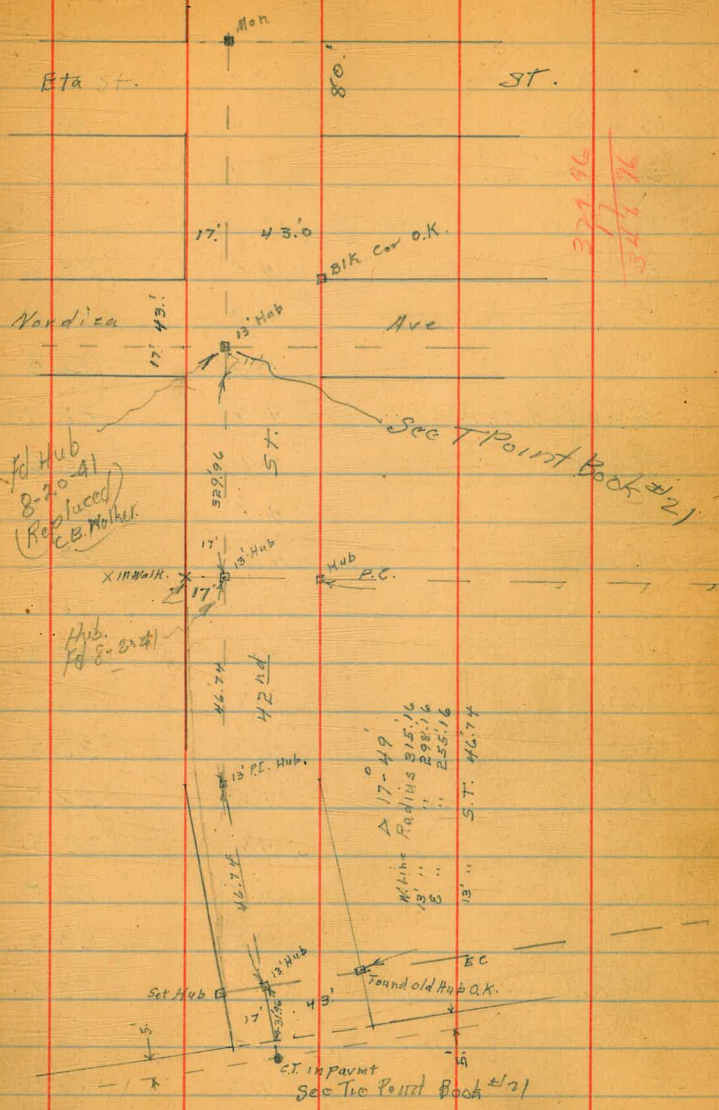 Mon
Eta St.
80.'
St.
329.96
17
346.96
17.'
43.'0
Blk Cor O.K.
Nordica
17' 43.'
13' Hub
Ave
Fd Hub
8-20-41
(Replaced)
C.B. Walker.
See T Point Book #21
329.96
St.
17'
13' Hub
Hub
P.C.
X in Walk.
17'
Hub.
Fd 8-20-41
46.74
42nd
13' P.I. Hub.
Δ 17°-49'
W. Line Radius 315.16
13' " " 298.16
E " " 255.16
13' " S.T. 46.74
46.74
13' Hub
E C
Set Hub
Found old Hub O.K.
17'
31.96
43'
5'
5'
C.T. in Pavmt
See Tie Point Book #21